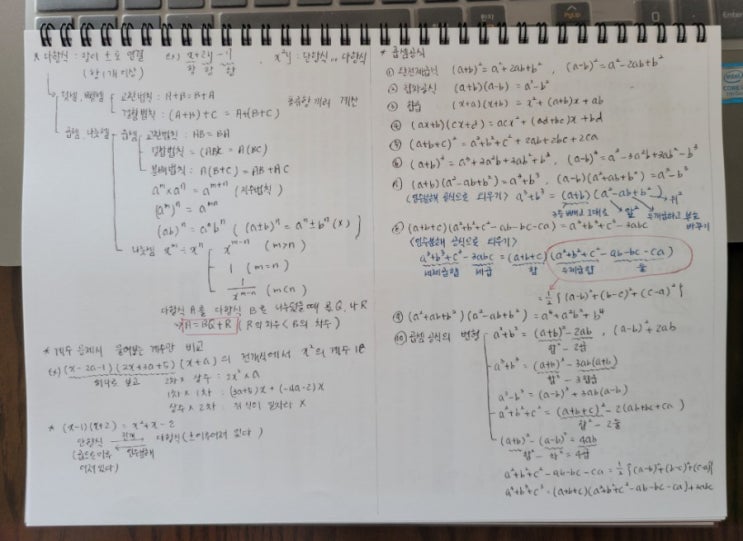 * 다항식 : 항이 ± 로 연결 ex) x+2y-1 , x²y : 단항식
항 항 항
(항 1개 이상)
덧셈, 뺄셈
교환법칙 : A+B=B+A
결합법칙 : (A+B)+C = A+(B+C)
동류항끼리 계산
곱셈, 나눗셈
곱셈
교환법칙 : AB=BA
결합법칙 : (AB)C = A(BC)
분배법칙 : A(B+C)=AB+AC
aᵐ×aⁿ = aᵐ⁺ⁿ (지수법칙)
(aᵐ)ⁿ = aᵐⁿ
(ab)ⁿ = aⁿbⁿ ( (a±b)ⁿ = aⁿ±bⁿ (X) )
나눗셈 xᵐ÷xⁿ
xᵐ⁻ⁿ (m>n)
1 (m=n)
1/xᵐ⁻ⁿ (m<n)
다항식 A를 다항식 B로 나누었을 때 몫 Q, 나 R
A=BQ+R (R의 차수 < B의 차수)
* 계수 문제에서 물어보는 계수만 비교
ex) (x-2a-1)(2x+3a+5)(x+a)의 전개식에서 x²의 계수
2차 × 상수 : 2x²×a
1차 × 1차 : (3a+5)x + (-4a-2)x
상수 × 2차
* (x-1)(x+2) = x²+x-2
단항식 전개 다항식 (±로 이루어져 있다)
(곱으로 이루 인수분해
어져 있다)
* 곱셈공식
① 완전제곱식 (a+b)²=a²+2ab+b² , (a-b)²=a²-2ab+b²
② 합차공식 (a+b)(a-b)=a²-b²
③ 합곱 (x+a)(x+b) = x²+(a+b)x+ab
④ (ax+b)(cx+d) = acx²+(ad+bc)x+bd
⑤ (a+b+c)²=a²+b²+c²+2ab+2bc+2ca
⑥ (a+b)³=a³+3a²b+3ab²+b³, (a-b)³=a³-3a²b+3ab²-b³
⑦ (a+b)(a²-ab+b²)=a³+b³, (a-b)(a²+ab+b²)=a³-b³
(인수분해 공식으로 외우기) a³+b³ = (a+b)(a²-ab+b²)
3승 빼고 그대로 앞² 두개 곱하고 부호 바꾸기 뒤²
⑧ (a+b+c)(a²+b²+c²-ab-bc-ca)=a³+b³+c³-3abc
(인수분해 공식으로 외우기)
a³+b³+c³-3abc=(a+b+c)(a²+b²+c²-ab-bc-ca)
세제곱합 세곱 합 두제곱합 곱
=½{(a-b)²+(b-c)²+(c-a)²}
⑨ (a²+ab+b²)(a²-ab+b²)=a⁴+a²b²+b⁴
⑩ 곱셈 공식의 변형
a²+b²=(a+b)²-2ab, (a-b)²+2ab
합²-2곱
a³+b³=(a+b)³-3ab(a+b)
합³-3합곱
a³-b³=(a-b)³+3ab(a-b)
a²+b²+c²=(a+b+c)²-2(ab+bc+ca)
합²-2곱
(a+b)²-(a-b)²=4ab
합²-차²=4곱
a²+b²+c²-ab-bc-ca=½{(a-b)²+(b-c)²+(c-a)²}
a³+b³+c³=(a+b+c)(a²+b²+c²-ab-bc-ca)+3abc
한자
PgUp
Enter
intel
CORE